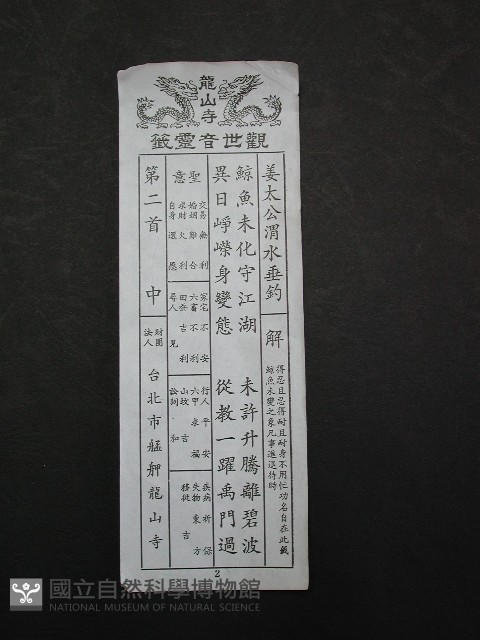 龍山寺
觀世音靈籤
姜太公渭水垂釣
解
得忍且忍得耐且耐身不用忙功名自在此籤
鯨魚未變之象凡事進退待時
鯨魚未化守江湖　未許升騰離碧波
異日崢嶸身變態　從教一躍禹門過
聖意
交易無利
婚姻難合
求財久利
自身還愿
家宅不安
六畜不利
田蚕吉利
尋人見
行人平安
六甲求福
山坟吉
訟詞和
疾病祈保
失物東方
移徙吉
第二首　中
財團法人
台北市艋舺龍山寺
2
國立自然科學博物館
NATIONAL MUSEUM OF NATURAL SCIENCE